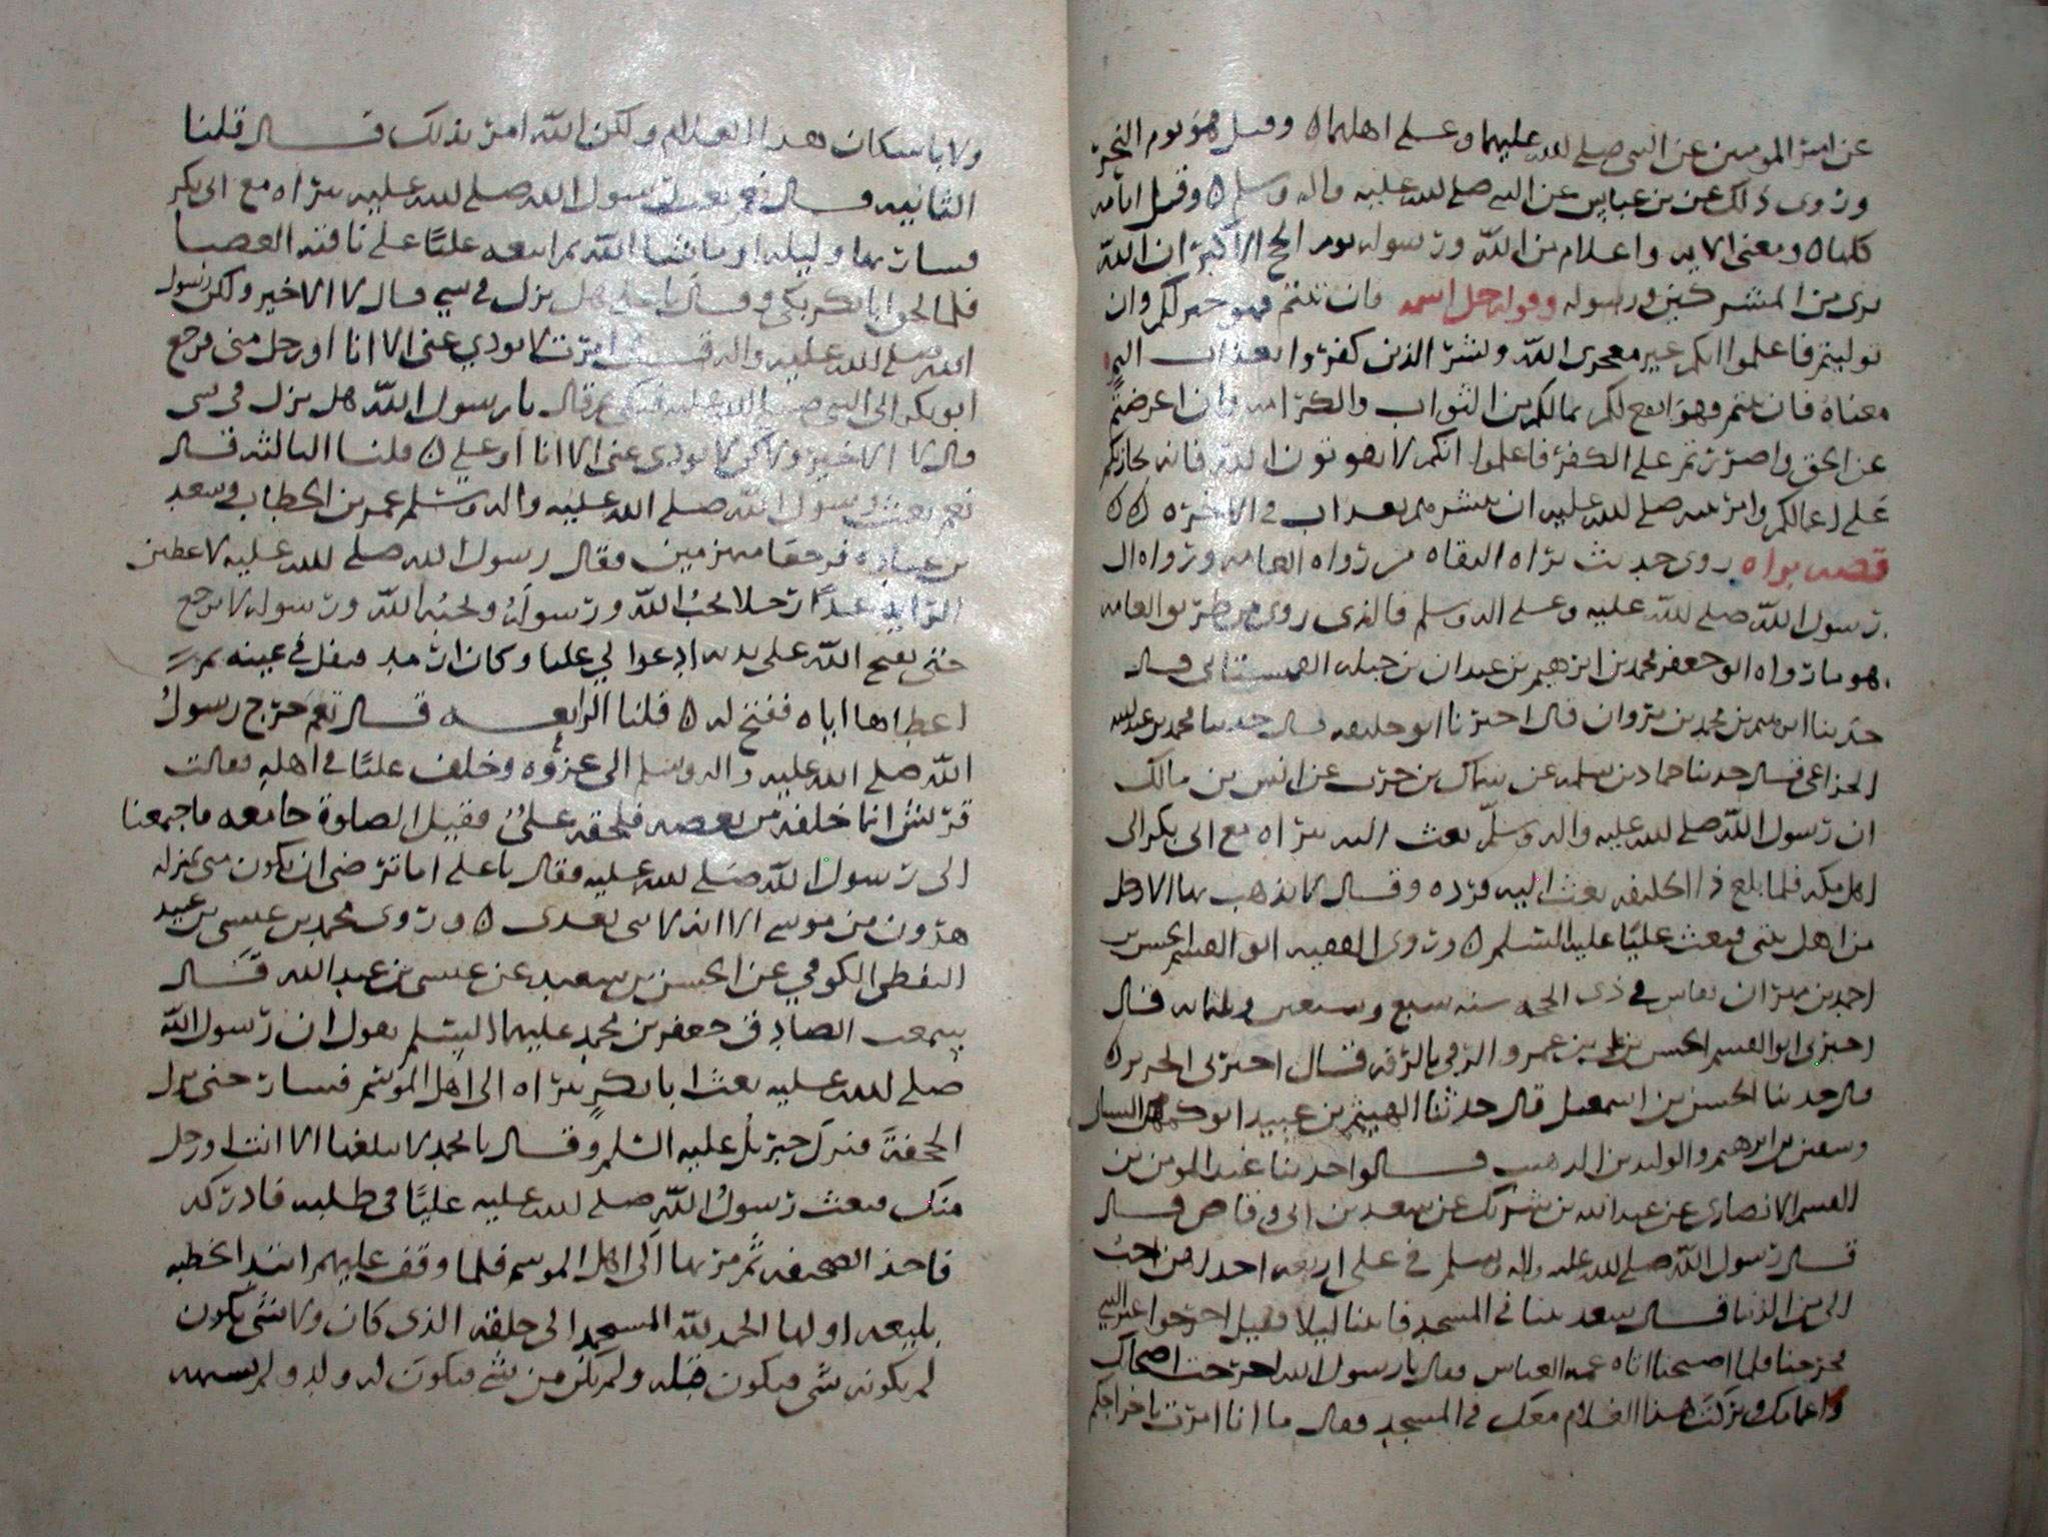 عن امير المومنين عن النبي صلى لله عليهما وعلى اهلهما ٥ وقيل هو يوم النحر
وروى ذلك عن بن عباس عن النبي صلى لله عليه واله وسلم ٥ وقيل ايامه
كلها ٥ ومعنى الايه واعلام من الله ورسوله يوم الحج الاكبر ان الله
برى من المشركين ورسوله وقوله جل اسمه فان تبتم فهو خير لكم وان
توليتم فاعلموا انكم غير معجزى الله وبشر الذين كفروا بعذاب اليم
معناه فان تبتم فهو انفع لكم لما لكم من الثواب والكرامه وان اعرضتم
عن الحق واصررتم على الكفر فاعلموا انكم لا تفوتون الله فانه يجازيكم
على اعمالكم وامر نبيه صلى لله عليه ان يبشرهم بعذاب في الاخره ٥٥
قصه براه روى حديث براه الثقاه من رواه العامه ورواه ال
رسول الله صلى لله عليه وعلى اله وسلم فالذى روى من طريق العامه
هو ما رواه ابو جعفر محمد بن ابرهيم بن عبدان بن جبله قال
حدثنا محمد بن مروان قال اخبرنا ابو خليفه قال حدثنا محمد بن عبد لله
الخزاعى قال حدثنا حماد بن سلمه عن سماك بن حرب عن انس بن مالك
ان رسول الله صلى لله عليه واله وسلم بعث براه مع ابى بكر الى
اهل مكه فلما بلغ ذا الحليفه بعث اليه فرده وقال لا يذهب بها الا رجل
من اهل بيتى فبعث عليا عليه السلم ٥ وروى الفقيه ابو القسم الحسن بن
احمد بن مهران بفاس في ذى الحجه سنه سبع وسبعين وثلثمايه قال
اخبرنى ابو القسم الحسن بن على بن عمرو الرقى بالرقه قال اخبرنى
قال حدثنا الحسن بن اسمعيل قال حدثنا الهيثم بن عبيد ابو
وسعيد بن ابرهيم والوليد بن الدهيب قالوا حدثنا عبد المومن بن
القسم الانصارى عن عبد الله بن شريك عن سعد بن ابى وقاص قال
قال رسول الله صلى لله عليه واله وسلم في على اربعه احداهن احب
الى من الدنيا قال سعد بتنا في المسجد فاتينا ليلا فقيل اخرجوا
فخرجنا فلما اصبحنا اتاه عمه العباس فقال يا رسول الله اخرجت اصحابك
واعمامك وتركت هذا الغلام معك في المسجد فقال ما انا امرت باخراجكم
ولا باسكان هذا الغلام ولكن الله امر بذلك قال قلنا
الثانيه قال نعم بعث رسول الله صلى لله عليه براه مع ابى بكر
فسار يوما وليله او ما شا الله ثم اتبعه عليًا على ناقته العضبا
فلما لحق ابا بكر بكى وقال يا على هل نزل في شي قال لا الا خير ولكن رسول
الله صلى لله عليه واله قال امرت لا يودي عنى الا انا او رجل منى فرجع
ابو بكر الى النبى صلى الله عليه فبكى ثم قال يا رسول الله هل نزل في شى
قال لا الا خير ولكن لا يودى عنى الا انا او على ٥ قلنا الثالثه قال
نعم بعث رسول الله صلى الله عليه واله وسلم عمر بن الخطاب وسعد
بن عباده فرجعا منهزمين فقال رسول الله صلى لله عليه لاعطين
الرايه غدًا رجلا يحب الله ورسوله ويحبه الله ورسوله لا يرجع
حتى يفتح الله على يديه ادعوا لي عليا وكان ارمد فتفل في عينه ثم
اعطاها اياه ففتح له ٥ قلنا الرابعه قال نعم خرج رسول
الله صلى الله عليه واله وسلم الى غزوه وخلف عليًا في اهله فقالت
قريش انما خلفه من بغضه فلحقه على فقيل الصلوة جامعه فاجتمعنا
الى رسول الله صلى لله عليه فقال يا على اما ترضى ان تكون منى بمنزله
هرون من موسى الا انه لا نبى بعدى ٥ وروى محمد بن عيسى بن عبيد
اليقطى الكوفي عن الحسن بن سعيد عن عيسى بن عبد الله قال
سمعت الصادق جعفر بن محمد عليهما السلم يقول ان رسول الله
صلى لله عليه بعث ابا بكر ببراه الى اهل الموسم فسار حتى نزل
الجحفة فنزل جبريل عليه السلم وقال يا محمد لا يبلغها الا انت او رجل
منك فبعث رسول الله صلى لله عليه عليًا في طلبه فادركه
فاخذ الصحيفه ثم مر بها الى اهل الموسم فلما وقف عليهم ابتدا بخطبه
بليغه اولها الحمد لله الى خلقه الذى كان ولا شى يكون
لم يكونه شى فيكون قبله ولم يكن من شى فيكون له ولد ولم